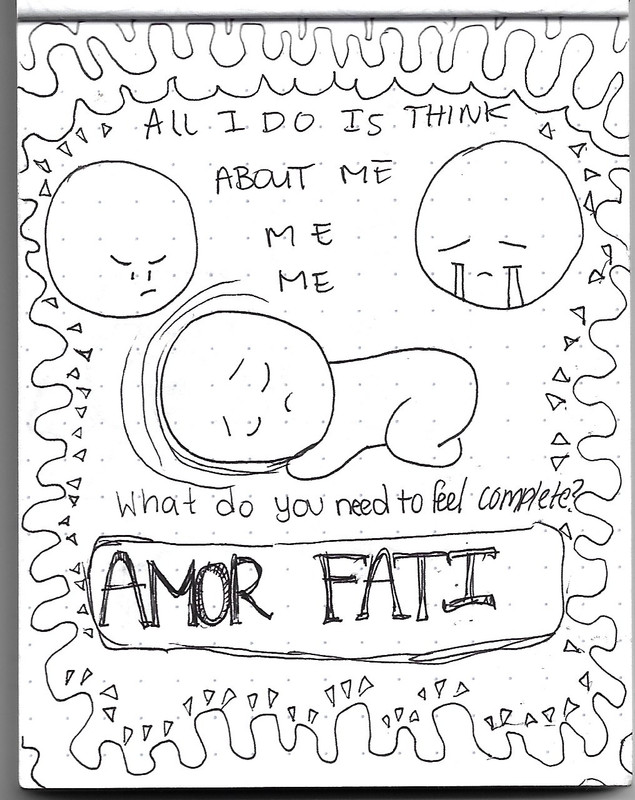 ALL I DO IS THINK
ABOUT ME
ME
ME
What do you need to feel complete?
AMOR FATI